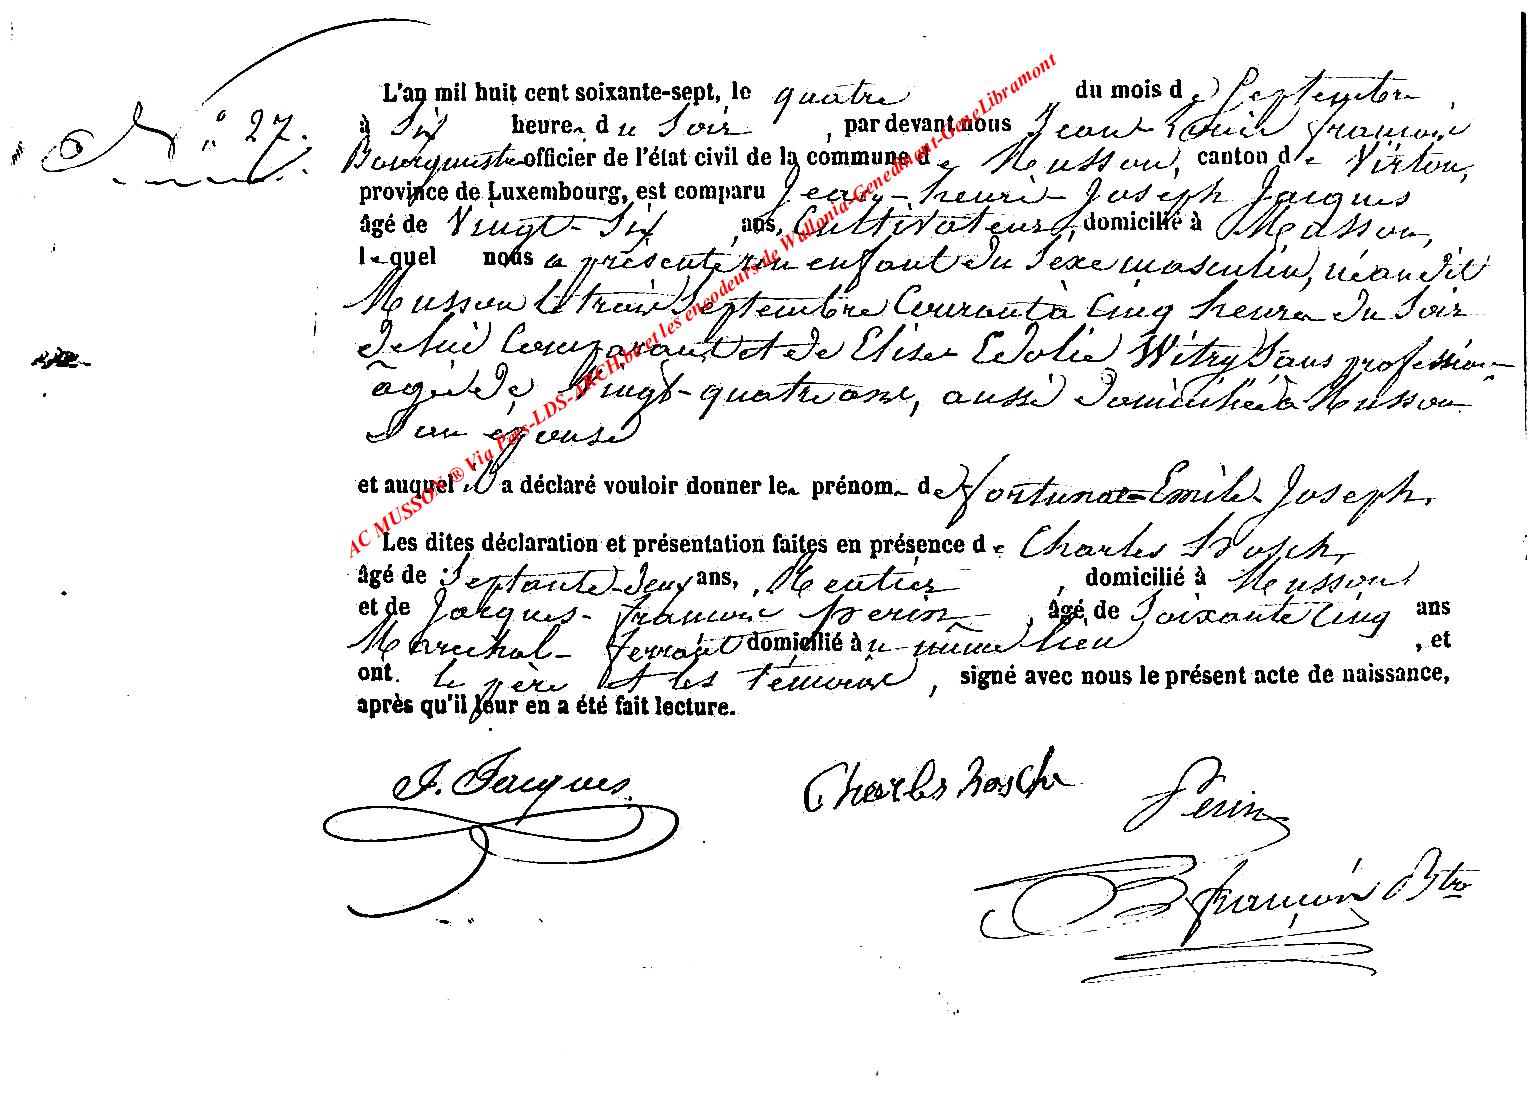 N° 27.
L'an mil huit cent soixante-sept, le quatre du mois de Septembre,
à Six heures du Soir, par devant nous Jean Louis françois
Bourguet officier de l'état civil de la commune de Musson, canton de Virton,
province de Luxembourg, est comparu Jean-henri-Joseph Jacques
âgé de Vingt-Six ans, Cultivateur, domicilié à Musson,
lequel nous a présenté un enfant du Sexe masculin, né audit
Musson le trois Septembre Courant à Cinq heures du Soir
de lui Comparant et de Elise Witry Sans profession
âgée de Vingt-quatre ans, aussi domiciliée à Musson
Son épouse
et auquel il a déclaré vouloir donner les prénoms de fortuné-Emile-Joseph.
Les dites déclaration et présentation faites en présence de Charles
âgé de Septante-deux ans, Rentier, domicilié à Musson
et de Jacques-françois Perin, âgé de Soixante Cinq ans
Maréchal-ferrant domicilié au même lieu, et
ont le père et les témoins, signé avec nous le présent acte de naissance,
après qu'il leur en a été fait lecture.
J. Jacques
Charles
Perin
françois Btre
AC MUSSON ® Via Pers-LDS-ARCH.be et les encodeurs de Wallonia-Genedinant-GeneLibramont